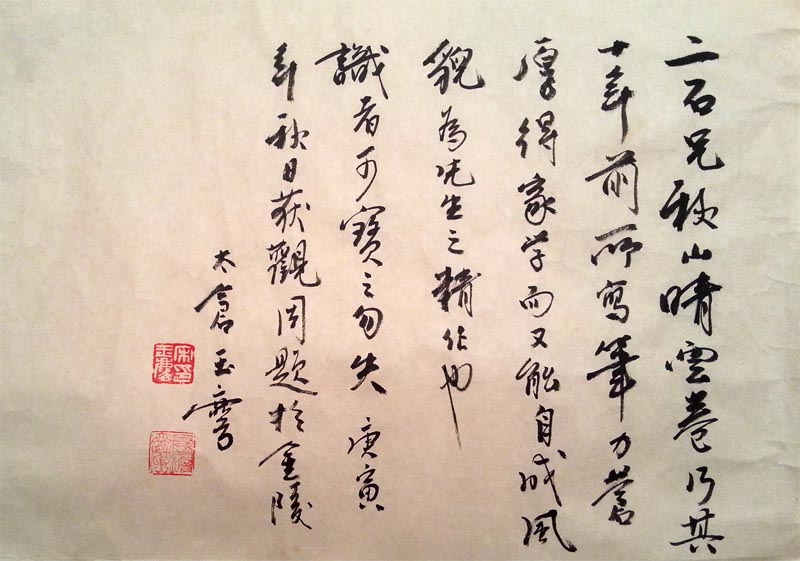 二石兄秋山晴雲卷乃其
十年前所寫筆力蒼
厚得家学而又能自成風
貌為先生之精作也
識者可寶之勿失 庚寅
年秋日获觀因題於金陵
太倉玉麐